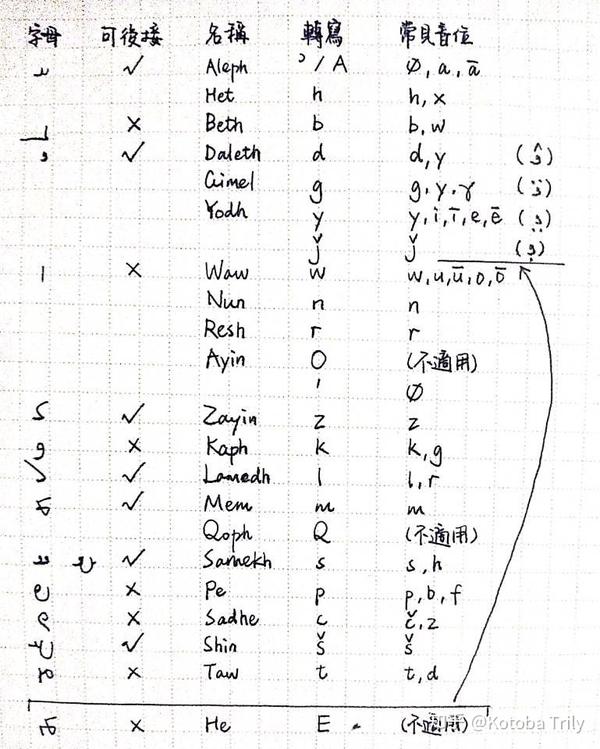 字母 可後接 名稱 轉寫 常見音位
✓ Aleph ʾ/A ∅, a, ā
Het h h, x
× Beth b b, w
✓ Daleth d d, y
Gimel g g, y, γ
Yodh y y, i, ī, e, ē
ǰ ǰ
× Waw w w, u, ū, o, ō
Nun n n
Resh r r
Ayin O (不適用)
' ∅
✓ Zayin z z
× Kaph k k, g
✓ Lamedh l l, r
✓ Mem m m
Qoph Q (不適用)
✓ Samekh s s, h
× Pe p p, b, f
× Sadhe c č, z
✓ Shin š š
× Taw t t, d
× He E (不適用)
知乎 @Kotoba Trily